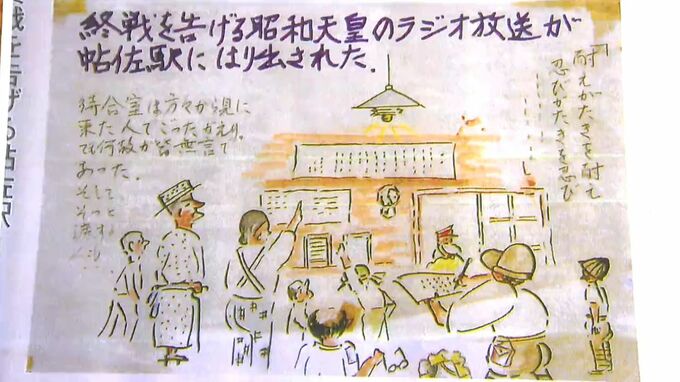 終戦を告げる昭和天皇のラジオ放送が
帖佐駅にはり出された.
待合室は方々から見に
来た人でごったがえり。
でも何故か皆無言で
あった.
そして
そっと
耐えがたきを耐え
忍びがたきを忍び